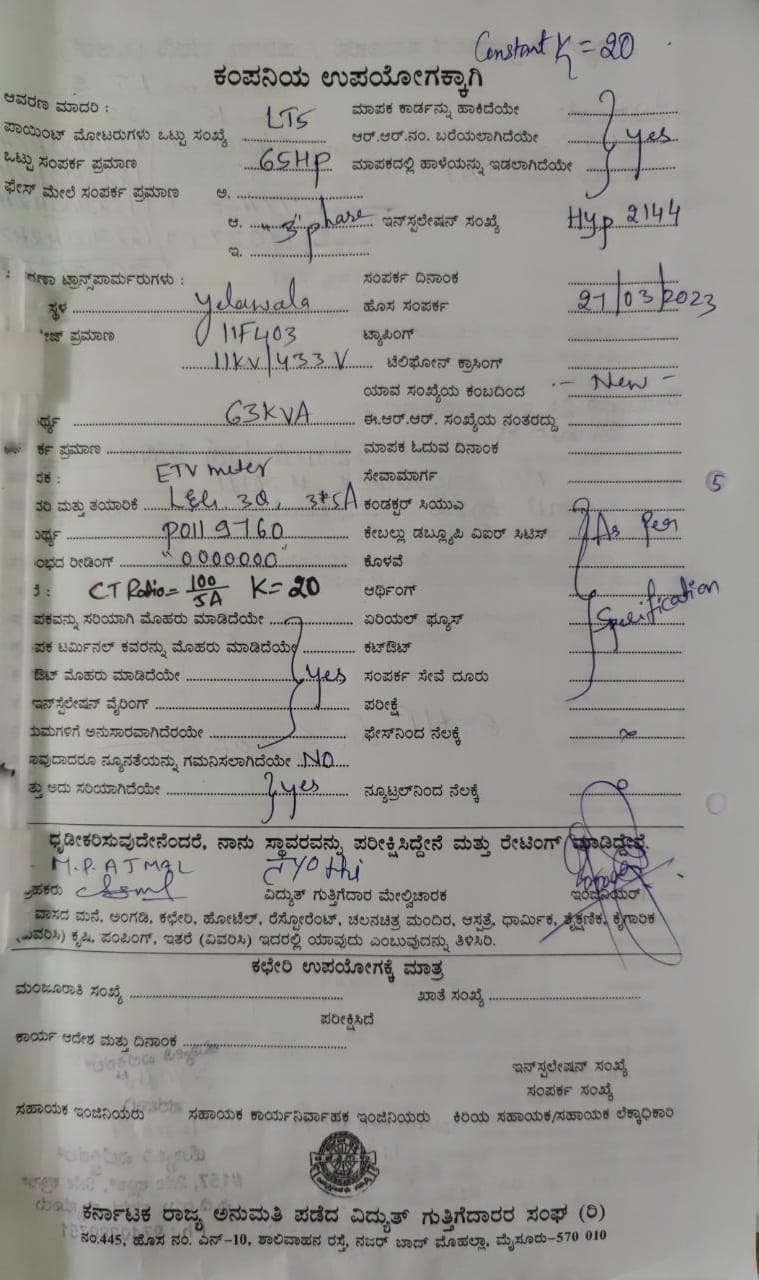 Constant K = 20
ಕಂಪನಿಯ ಉಪಯೋಗಕ್ಕಾಗಿ
ಆವರಣ ಮಾದರಿ : LT5 ಮಾಪಕ ಕಾರ್ಡನ್ನು ಹಾಕಿದೆಯೇ
ಪಾಯಿಂಟ್ ಮೋಟರುಗಳು ಒಟ್ಟು ಸಂಖ್ಯೆ ಆರ್.ಆರ್.ನಂ. ಬರೆಯಲಾಗಿದೆಯೇ yes
ಒಟ್ಟು ಸಂಪರ್ಕ ಪ್ರಮಾಣ 65HP ಮಾಪಕದಲ್ಲಿ ಹಾಳೆಯನ್ನು ಇಡಲಾಗಿದೆಯೇ
ಫೇಸ್ ಮೇಲೆ ಸಂಪರ್ಕ ಪ್ರಮಾಣ ಅ.
ಆ. "3" phase ಇನ್‌ಸ್ಟಲೇಷನ್ ಸಂಖ್ಯೆ Hyp 2144
ಇ.
ರಣಾ ಟ್ರಾನ್ಸ್‌ಪಾರ್ಮರುಗಳು : ಸಂಪರ್ಕ ದಿನಾಂಕ
ಸ್ಥಳ yelawala ಹೊಸ ಸಂಪರ್ಕ 27/03/2023
ೇಜ್ ಪ್ರಮಾಣ 11F403 ಟ್ಯಾಪಿಂಗ್
11KV/433V ಟೆಲಿಫೋನ್ ಕ್ರಾಸಿಂಗ್
ಯಾವ ಸಂಖ್ಯೆಯ ಕಂಬದಿಂದ - New -
ರ್ಥ್ಯ 63KVA ಈ.ಆರ್.ಆರ್. ಸಂಖ್ಯೆಯ ನಂತರದ್ದು
ರ್ಕ ಪ್ರಮಾಣ ಮಾಪಕ ಓದುವ ದಿನಾಂಕ
ಪಕ : ETV meter ಸೇವಾಮಾರ್ಗ
ತರಿ ಮತ್ತು ತಯಾರಿಕೆ L&G 3Q, 3*5A ಕಂಡಕ್ಟರ್ ಸಿಯುಎ
ರ್ಥ್ಯ P0119760 ಕೇಬಲ್ಲು ಡಬ್ಲ್ಯೂಪಿ ವಿಐರ್ ಸಿಟಿಸ್ As Per
ಂಭದ ರೀಡಿಂಗ್ "0000000" ಕೊಳವೆ
CT Ratio = 100/5A K=20 ಆರ್ಥಿಂಗ್ Specification
ಪಕವನ್ನು ಸರಿಯಾಗಿ ಮೊಹರು ಮಾಡಿದೆಯೇ ಏರಿಯಲ್ ಫ್ಯೂಸ್
ಪಕ ಟರ್ಮಿನಲ್ ಕವರನ್ನು ಮೊಹರು ಮಾಡಿದೆಯೇ ಕಟ್‌ಔಟ್
ಔಟ್ ಮೊಹರು ಮಾಡಿದೆಯೇ yes ಸಂಪರ್ಕ ಸೇವೆ ದೂರು
ಇನ್‌ಸ್ಟಲೇಷನ್ ವೈರಿಂಗ್ ಪರೀಕ್ಷೆ
ಯಮಗಳಿಗೆ ಅನುಸಾರವಾಗಿದೆರಯೇ ಫೇಸ್‌ನಿಂದ ನೆಲಕ್ಕೆ
ಾವುದಾದರೂ ನ್ಯೂನತೆಯನ್ನು ಗಮನಿಸಲಾಗಿದೆಯೇ NO
ತ್ತು ಅದು ಸರಿಯಾಗಿದೆಯೇ yes ನ್ಯೂಟ್ರಲ್‌ನಿಂದ ನೆಲಕ್ಕೆ
ಧೃಡೀಕರಿಸುವುದೇನೆಂದರೆ, ನಾನು ಸ್ಥಾವರವನ್ನು ಪರೀಕ್ಷಿಸಿದ್ದೇನೆ ಮತ್ತು ರೇಟಿಂಗ್ ಮಾಡಿದ್ದೇನೆ.
M.P. AJMAL JYOthi
್ರಾಹಕರು ವಿದ್ಯುತ್ ಗುತ್ತಿಗೆದಾರ ಮೇಲ್ವಿಚಾರಕ ಇಂಜಿನಿಯರ್
ವಾಸದ ಮನೆ, ಅಂಗಡಿ, ಕಛೇರಿ, ಹೋಟೆಲ್, ರೆಸ್ಟೋರೆಂಟ್, ಚಲನಚಿತ್ರ ಮಂದಿರ, ಆಸ್ಪತ್ರೆ, ಧಾರ್ಮಿಕ, ಶೈಕ್ಷಣಿಕ, ಕೈಗಾರಿಕ
(ವಿವರಿಸಿ) ಕೃಷಿ, ಪಂಪಿಂಗ್, ಇತರೆ (ವಿವರಿಸಿ) ಇದರಲ್ಲಿ ಯಾವುದು ಎಂಬುವುದನ್ನು ತಿಳಿಸಿರಿ.
ಕಛೇರಿ ಉಪಯೋಗಕ್ಕೆ ಮಾತ್ರ
ಮಂಜೂರಾತಿ ಸಂಖ್ಯೆ ಖಾತೆ ಸಂಖ್ಯೆ
ಪರೀಕ್ಷಿಸಿದೆ
ಕಾರ್ಯ ಆದೇಶ ಮತ್ತು ದಿನಾಂಕ
ಇನ್‌ಸ್ಟಲೇಷನ್ ಸಂಖ್ಯೆ
ಸಂಪರ್ಕ ಸಂಖ್ಯೆ
ಸಹಾಯಕ ಇಂಜಿನಿಯರು ಸಹಾಯಕ ಕಾರ್ಯನಿರ್ವಾಹಕ ಇಂಜಿನಿಯರು ಕಿರಿಯ ಸಹಾಯಕ/ಸಹಾಯಕ ಲೆಕ್ಕಾಧಿಕಾರಿ
ಕರ್ನಾಟಕ ರಾಜ್ಯ ಅನುಮತಿ ಪಡೆದ ವಿದ್ಯುತ್ ಗುತ್ತಿಗೆದಾರರ ಸಂಘ (ರಿ)
ನಂ.445, ಹೊಸ ನಂ. ಎನ್-10, ಶಾಲಿವಾಹನ ರಸ್ತೆ, ನಜರ್ ಬಾದ್ ಮೊಹಲ್ಲಾ, ಮೈಸೂರು-570 010